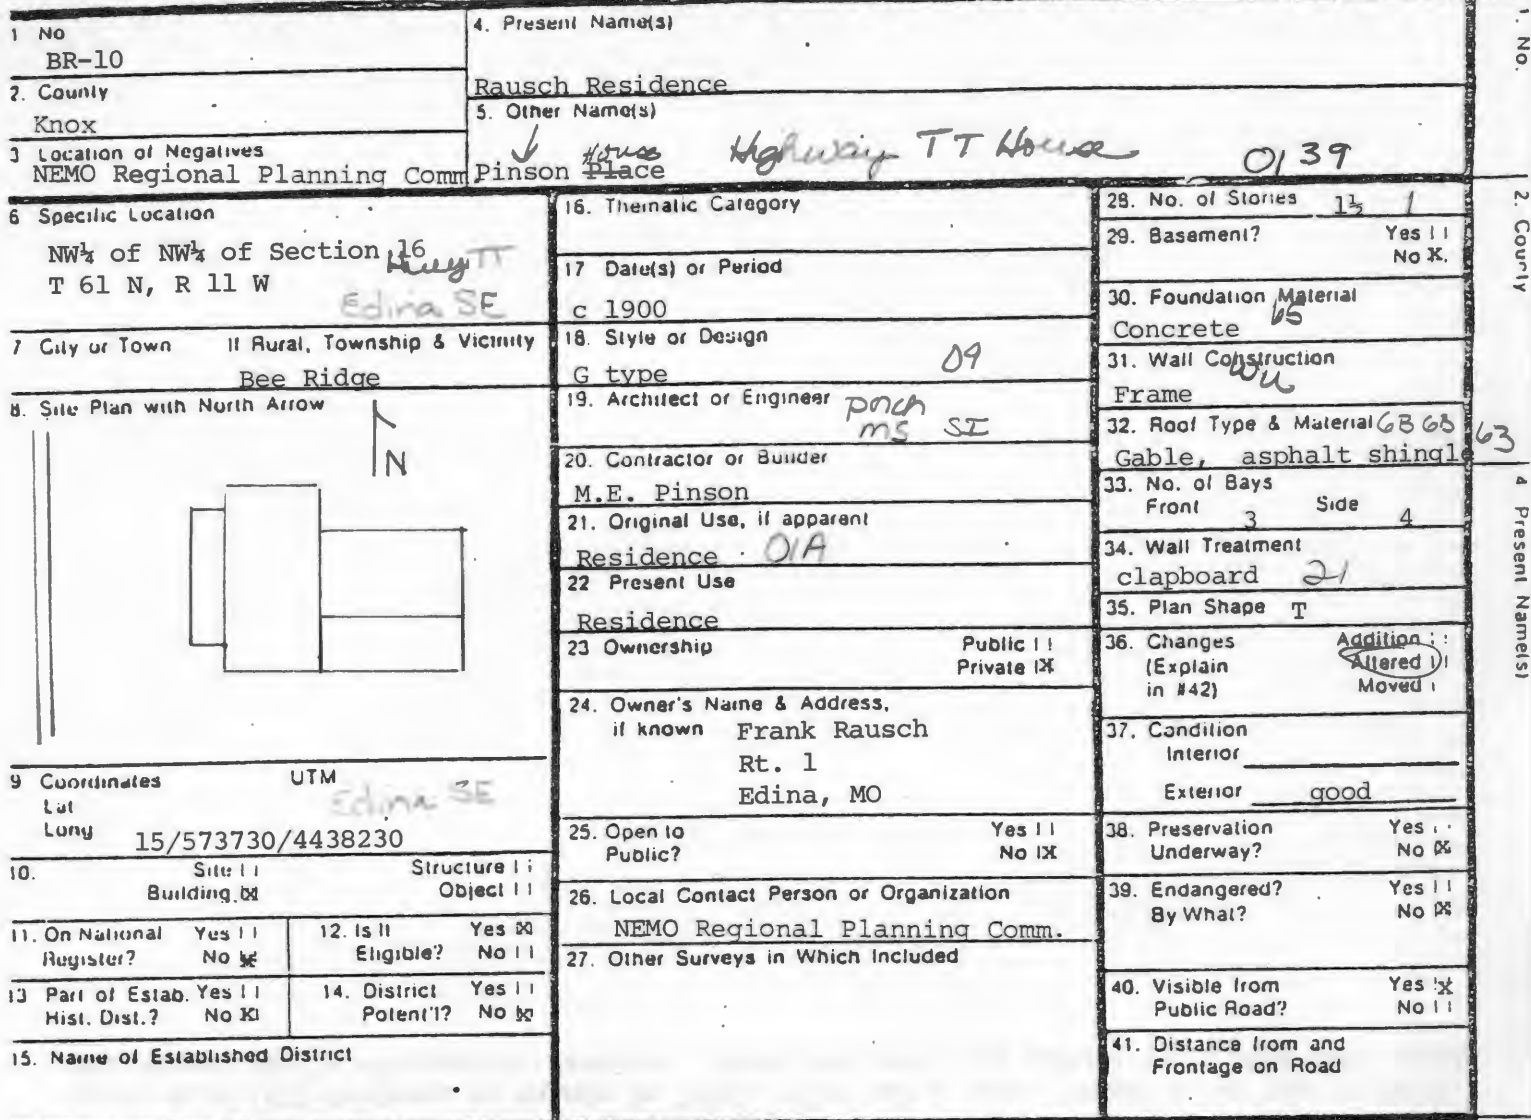 1 No
BR-10
2. County
Knox
3 Location of Negatives
NEMO Regional Planning Comm
4. Present Name(s)
Rausch Residence
5. Other Name(s)
Pinson Place House Highway TT House 0139
6 Specific Location
NW¼ of NW¼ of Section 16
Hwy TT
T 61 N, R 11 W
Edina SE
7 City or Town If Rural, Township & Vicinity
Bee Ridge
8. Site Plan with North Arrow
N
9 Coordinates UTM
Lat
Long
Edina SE
15/573730/4438230
10. Site Structure
Building X Object
11. On National Register? Yes No X
12. Is It Eligible? Yes X No
13 Part of Estab. Hist. Dist.? Yes No X
14. District Potent'l? Yes No X
15. Name of Established District
16. Thematic Category
17 Date(s) or Period
c 1900
18. Style or Design
G type 09
19. Architect or Engineer
porch
MS SI
20. Contractor or Builder
M.E. Pinson
21. Original Use, if apparent
Residence 01A
22 Present Use
Residence
23 Ownership Public
Private X
24. Owner's Name & Address,
if known Frank Rausch
Rt. 1
Edina, MO
25. Open to Yes
Public? No X
26. Local Contact Person or Organization
NEMO Regional Planning Comm.
27. Other Surveys in Which Included
28. No. of Stories 1½ 1
29. Basement? Yes
No X
30. Foundation Material
Concrete 65
31. Wall Construction
Frame WU
32. Roof Type & Material 6B 6B 63
Gable, asphalt shingle
33. No. of Bays
Front 3 Side 4
34. Wall Treatment
clapboard 21
35. Plan Shape T
36. Changes Addition
(Explain Altered
in #42) Moved
37. Condition
Interior
Exterior good
38. Preservation Yes
Underway? No X
39. Endangered? Yes
By What? No X
40. Visible from Yes X
Public Road? No
41. Distance from and
Frontage on Road
1. No.
2. County
4 Present Name(s)